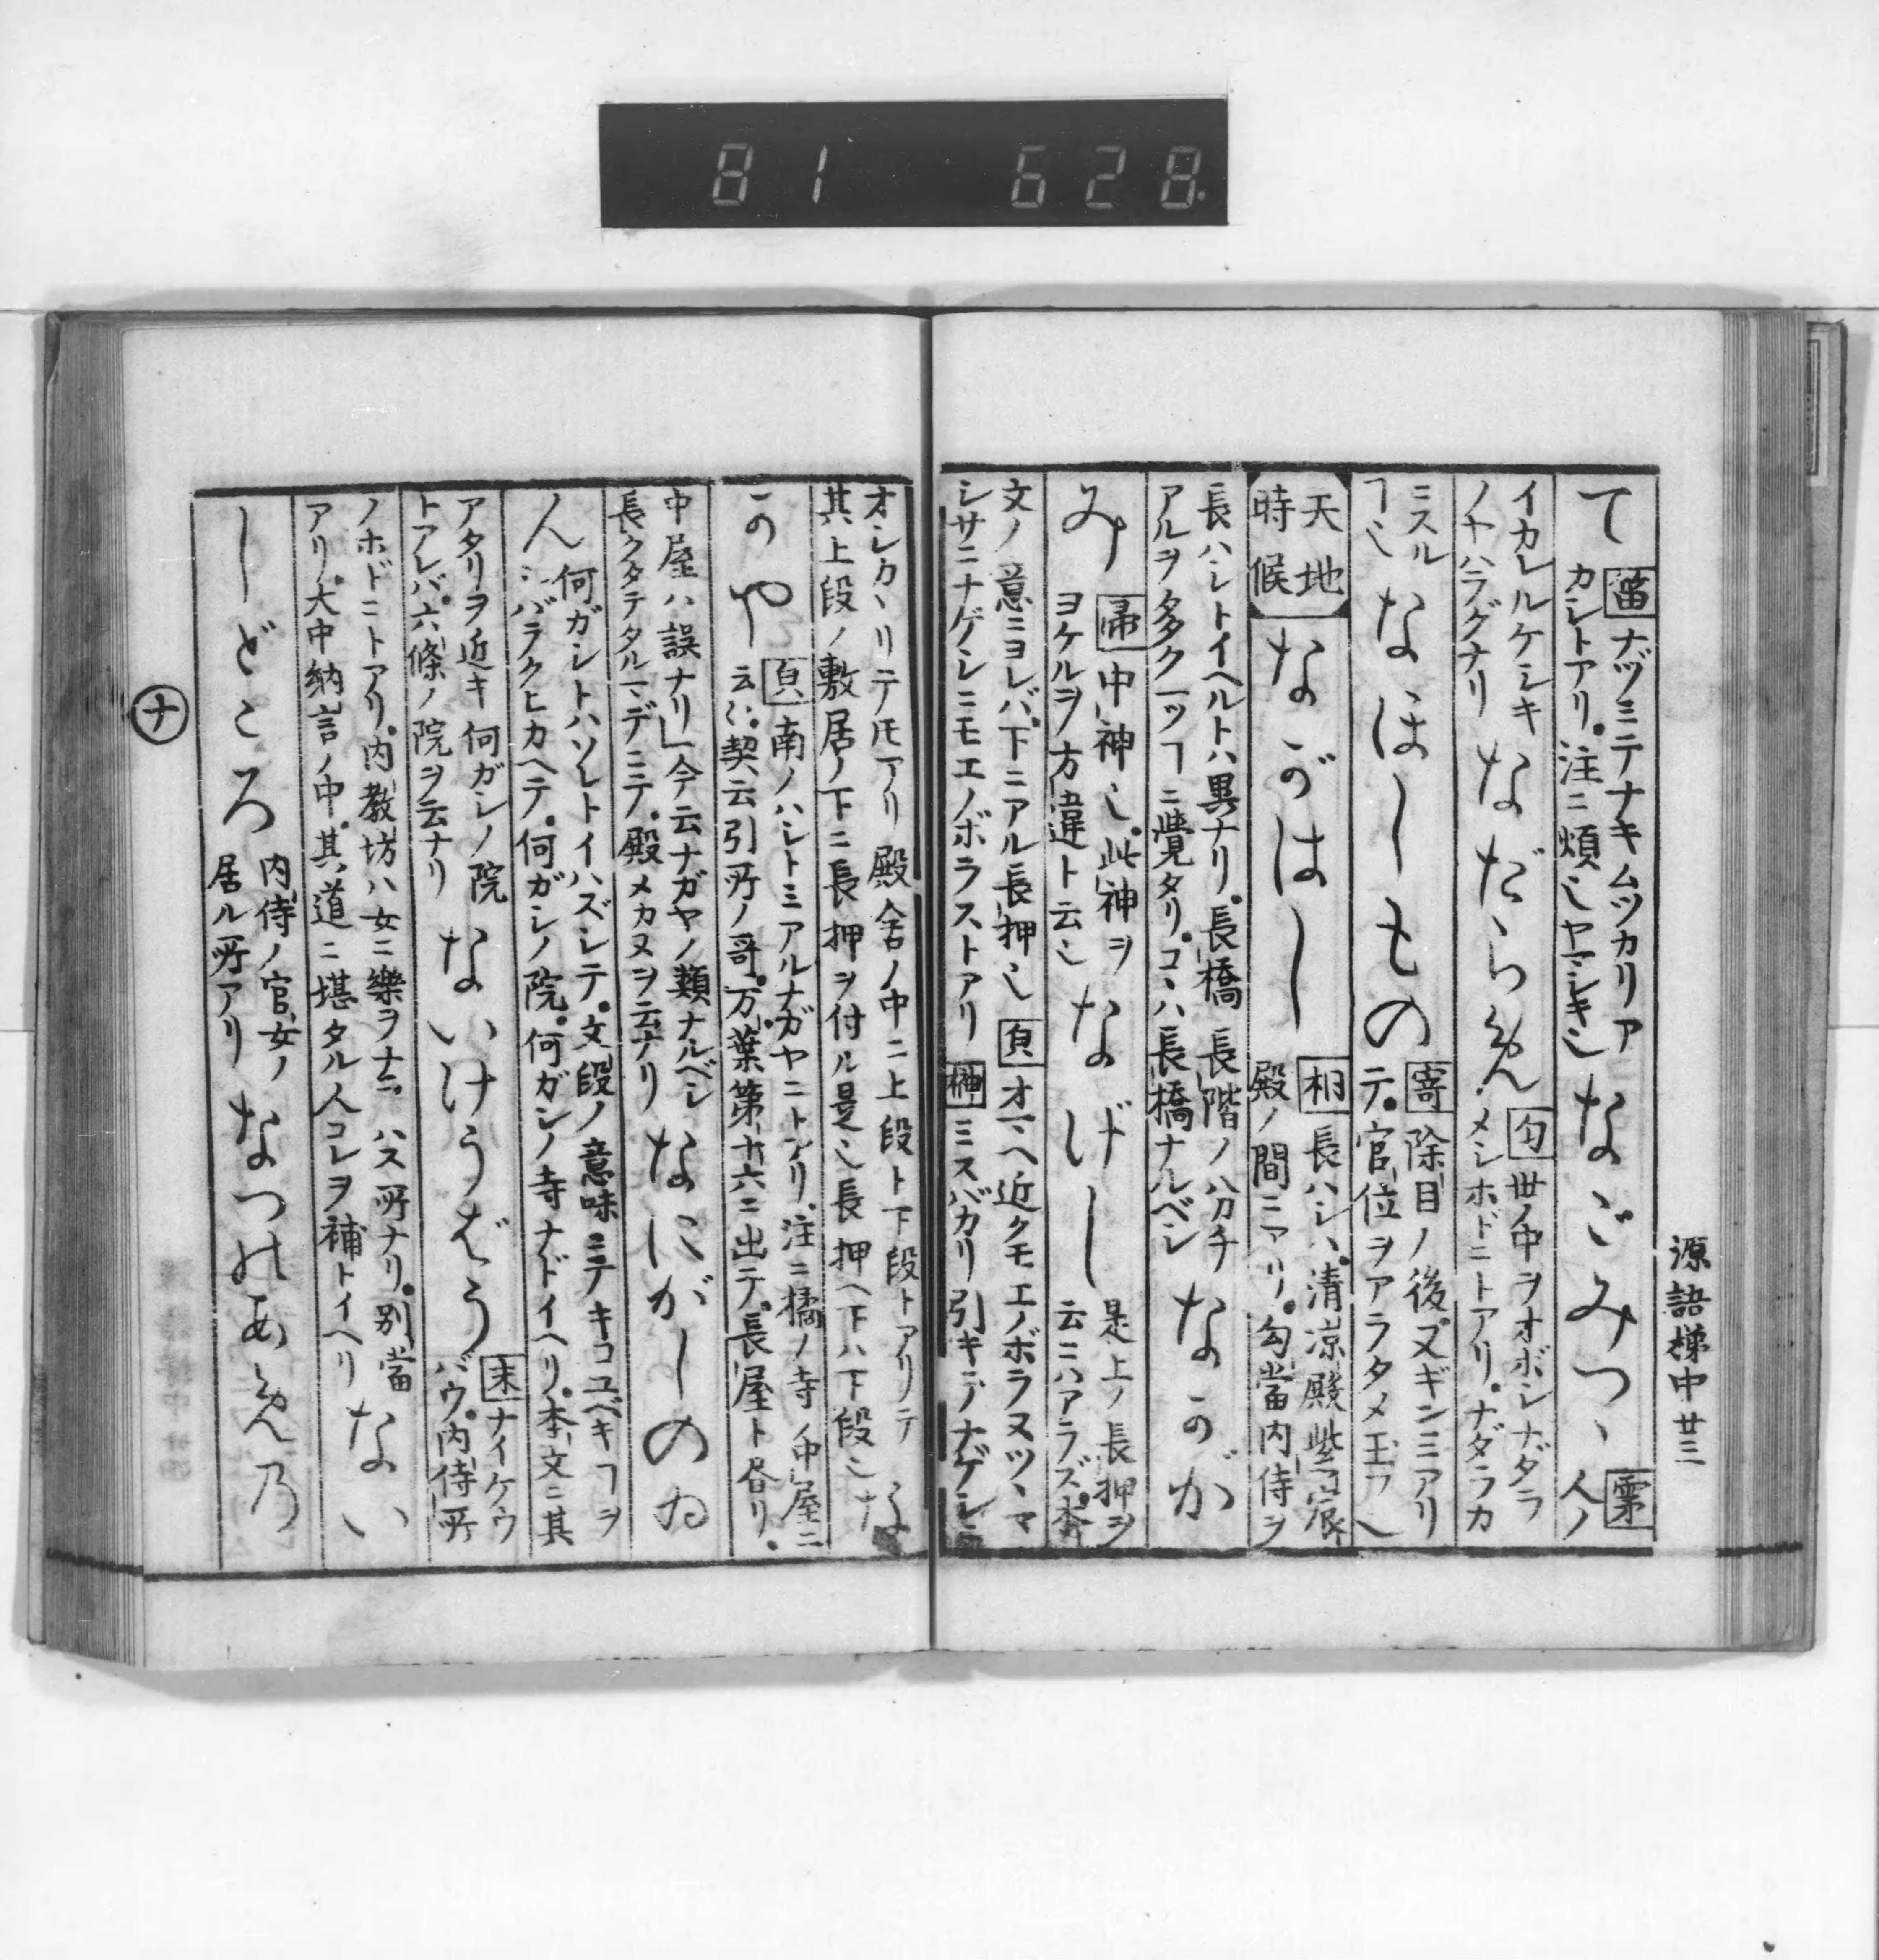 81 628
源語梯中 廿三
て 笛 ナヅミテナキムツカリア
カシトアリ。注ニ煩シヤマシキ也 なごみつゝ 霄 人ノ
イカレルケシキ
ノヤハラグナリ なだらめん 匂 世ノ中ヲオボシナダラ
メシホドニトアリ。ナダラカ
ニスル
ヿ也 なほしもの 寄 除目ノ後。又ギンミアリ
テ。官位ヲアラタメ玉フヘ
天地
時候 ながはし 桐 長ハシハ。清凉殿紫宸
殿ノ間ニアリ。勾當内侍ヲ
長ハシトイヘルトハ異ナリ。長橋 長階ノ分チ
アルヲ多ク一ツヿニ覺タリ。コヽハ長橋ナルベシ なかが
み 帚 中神也。此神ヲ
ヨケルヲ方違ト云也 なげし 是上ノ長押ヲ
云ニハアラズ。本
文ノ意ニヨレバ。下ニアル長押也 眞 オマヘ近クモエノボラヌツヽマ
シサニナゲシニモエノボラストアリ 榊 ミスバカリ引キテナゲシニ
オシカヽリテ𪜈アリ 殿舎ノ中ニ上段ト下段トアリテ
其上段ノ敷居ノ下ニ長押ヲ付ル是也長押ヘ下ハ下段也 な
かのや 眞 南ノハシトミアルナガヤニトアリ。注ニ橘ノ寺ノ中屋ニ
云々。契云引所ノ哥。万葉第十六ニ出テ。長屋ト各リ。
中屋ハ誤ナリ」今云ナガヤノ類ナルベシ
長クタテタルマデニテ。殿メカヌヲ云ナリ なにがしのゐ
ん 何ガシトハソレトイハズシテ。文段ノ意味ニテキコユベキヿヲ
シバラクヒカヘテ。何ガシノ院。何ガシノ寺ナドイヘリ。本文ニ其
アタリヲ近キ 何ガシノ院
トアレバ。六條ノ院ヲ云ナリ ないけうばう 末 ナイケウ
バウ。内侍所
ノホドニトアリ。内教坊ハ女ニ樂ヲナラハス所ナリ。別當
アリ。大中納言ノ中。其道ニ堪タル人コレヲ補トイヘリ ない
しどころ 内侍ノ官女ノ
居ル所アリ なつのあめ乃
ナ